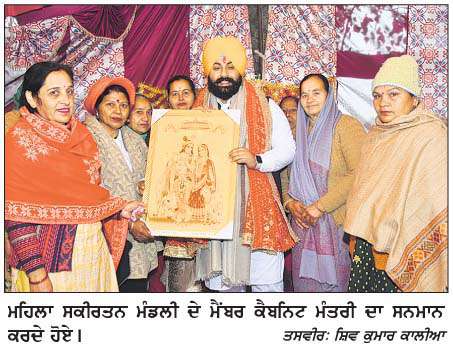 ਮਹਿਲਾ ਸਕੀਰਤਨ ਮੰਡਲੀ ਦੇ ਮੈਂਬਰ ਕੈਬਨਿਟ ਮੰਤਰੀ ਦਾ ਸਨਮਾਨ
ਕਰਦੇ ਹੋਏ। ਤਸਵੀਰ: ਸ਼ਿਵ ਕੁਮਾਰ ਕਾਲੀਆ